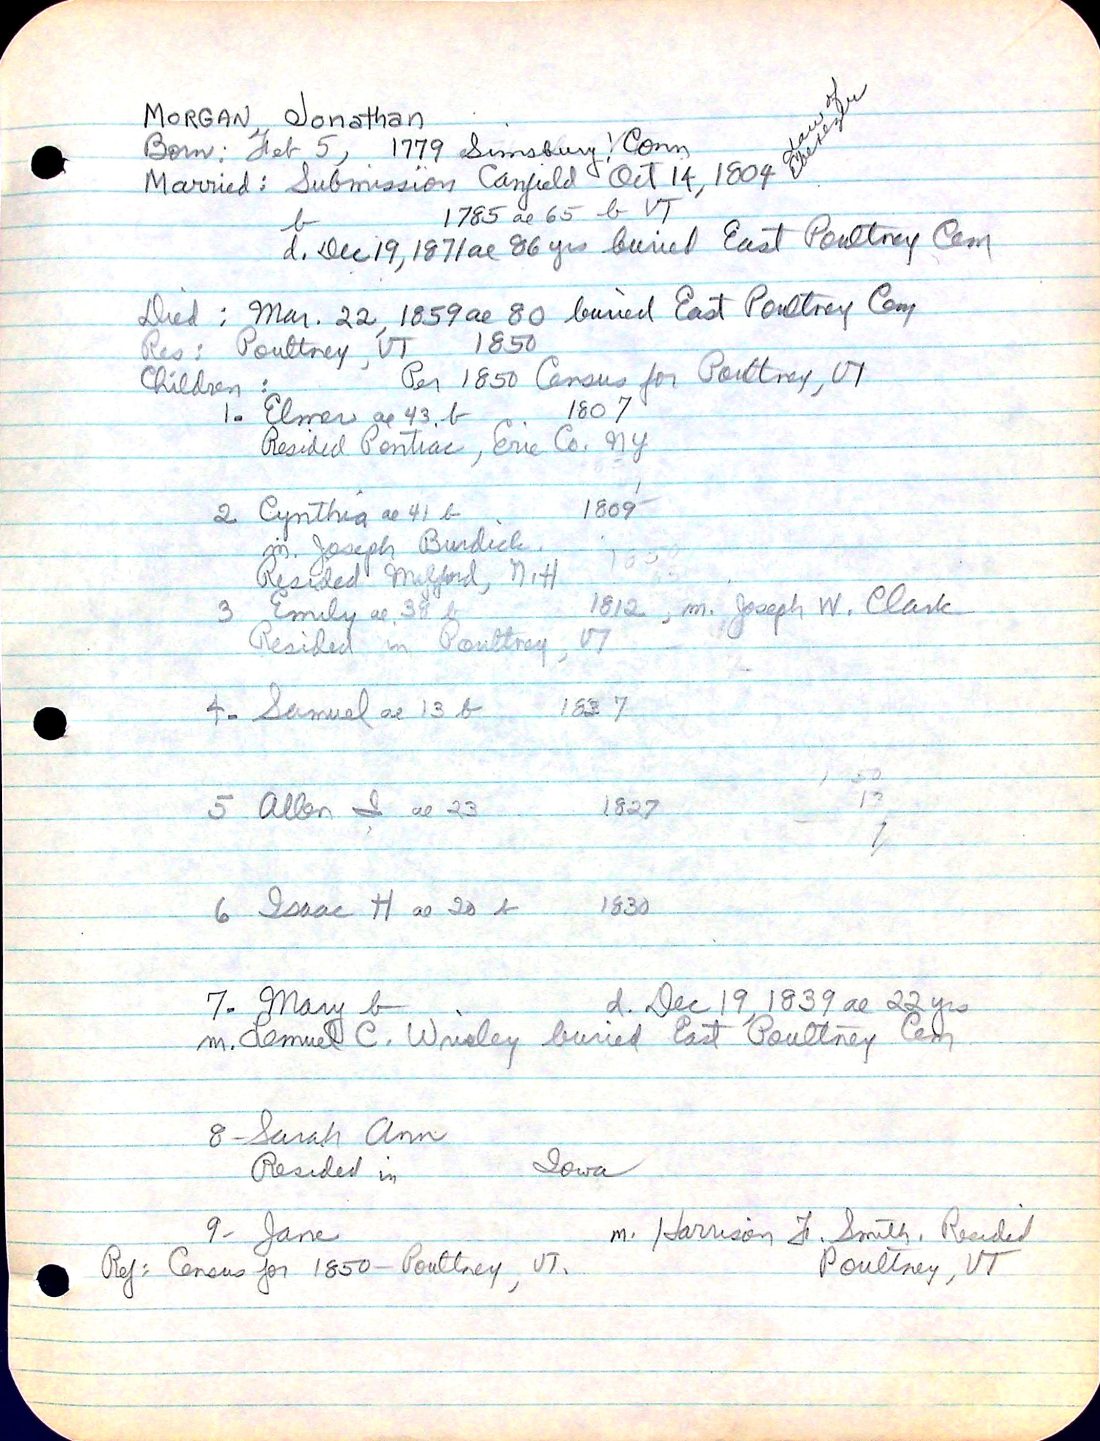 MORGAN, Jonathan
Born: Feb 5, 1779 Simsbury, Conn
Married: Submission Canfield Oct 14, 1804
dau of
Ebenezer
b 1785 ae 65 b VT
d. Dec 19, 1871 ae 86 yrs buried East Poultney Cem
Died: Mar. 22, 1859 ae 80 buried East Poultney Cem
Res: Poultney, VT 1850
Children: Per 1850 Census for Poultney, VT
1. Elmer ae 43 b 1807
Resided Pontiac, Erie Co. NY
2 Cynthia ae 41 b 1809
m. Joseph Burdick.
Resided Milford, NH
3 Emily ae 38 b 1812, m. Joseph W. Clark
Resided in Poultney, VT
4. Samuel ae 13 b 1837
5 Allen ae 23 1827
6 Isaac H ae 20 b 1830
7. Mary b d. Dec 19, 1839 ae 22 yrs
m. Lemuel C. Wrisley buried East Poultney Cem
8- Sarah Ann
Resided in Iowa
9- Jane m. Harrison F. Smith. Resided
Ref: Census for 1850 - Poultney, VT. Poultney, VT